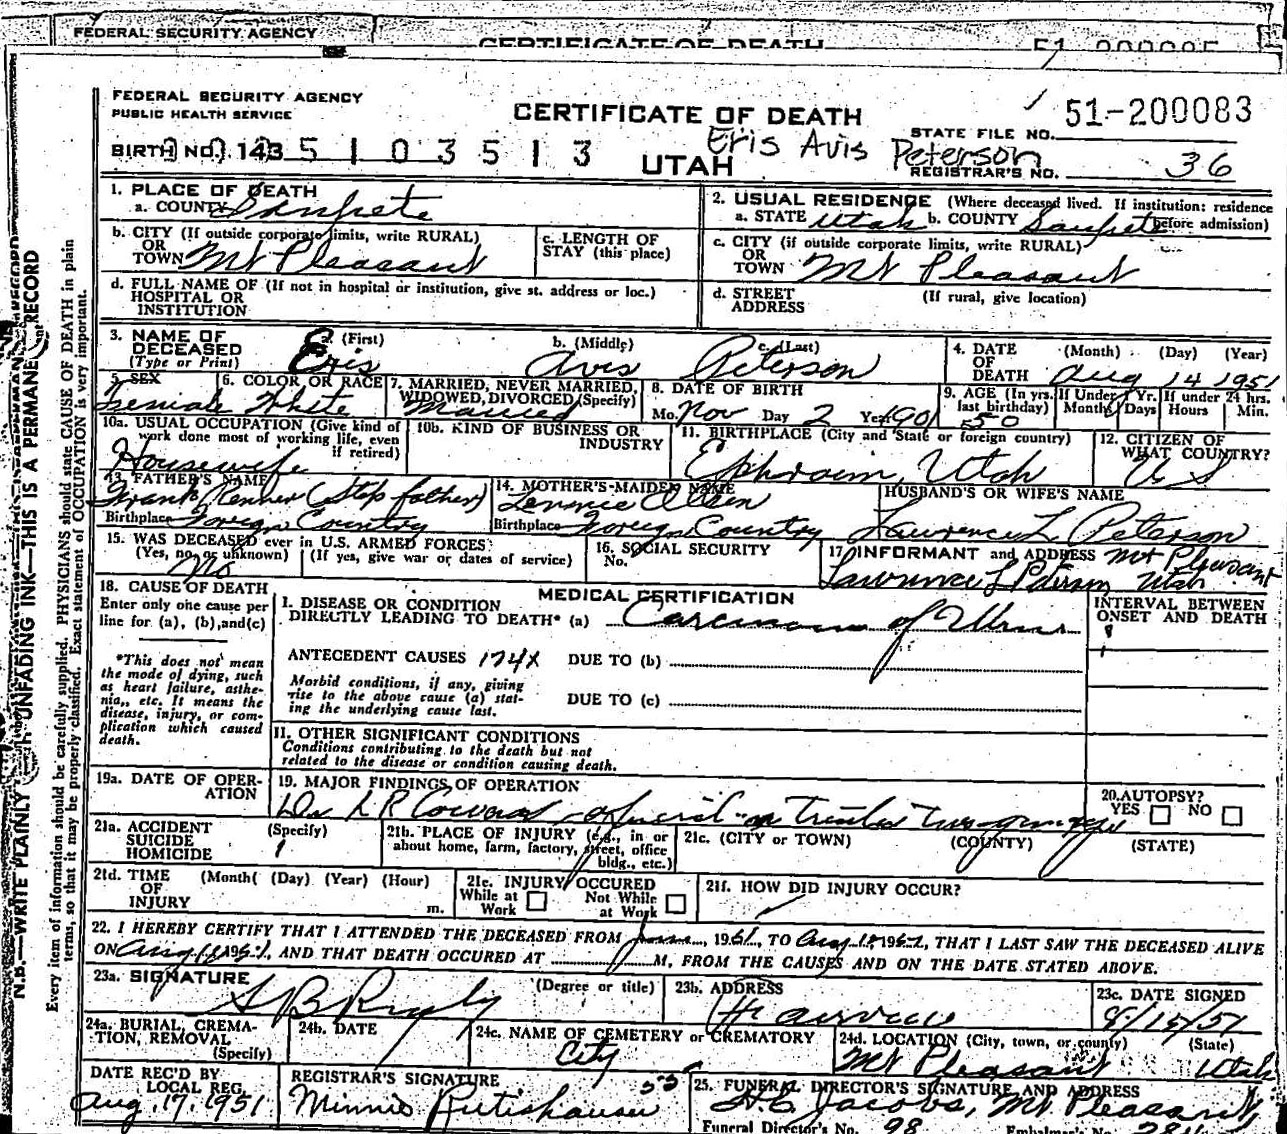 FEDERAL SECURITY AGENCY
CERTIFICATE OF DEATH
51-200085
FEDERAL SECURITY AGENCY
PUBLIC HEALTH SERVICE
CERTIFICATE OF DEATH
51-200083
STATE FILE NO.
Eris Avis Peterson
BIRTH NO. 143
5 1 0 3 5 1 3
UTAH
REGISTRAR'S NO. 36
1. PLACE OF DEATH
a. COUNTY Sanpete
2. USUAL RESIDENCE (Where deceased lived. If institution: residence before admission)
a. STATE Utah b. COUNTY Sanpete
b. CITY (If outside corporate limits, write RURAL)
OR
TOWN Mt Pleasant
c. LENGTH OF
STAY (this place)
c. CITY (if outside corporate limits, write RURAL)
OR
TOWN Mt Pleasant
d. FULL NAME OF (If not in hospital or institution, give st. address or loc.)
HOSPITAL OR
INSTITUTION
d. STREET (If rural, give location)
ADDRESS
3. NAME OF
DECEASED
(Type or Print)
a. (First) b. (Middle) c. (Last)
Eris Avis Peterson
4. DATE (Month) (Day) (Year)
OF
DEATH Aug 14 1951
5. SEX
Female
6. COLOR OR RACE
White
7. MARRIED, NEVER MARRIED,
WIDOWED, DIVORCED (Specify)
Married
8. DATE OF BIRTH
Mo. Nov Day 2 Year 1901
9. AGE (In yrs. last birthday) 50
If Under 1 Yr. Months Days
If under 24 hrs. Hours Min.
10a. USUAL OCCUPATION (Give kind of
work done most of working life, even
if retired)
Housewife
10b. KIND OF BUSINESS OR
INDUSTRY
11. BIRTHPLACE (City and State or foreign country)
Ephraim, Utah
12. CITIZEN OF
WHAT COUNTRY?
U S
13. FATHER'S NAME
Frank (Step father)
Birthplace Foreign Country
14. MOTHER'S MAIDEN NAME
Birthplace Foreign Country
HUSBAND'S OR WIFE'S NAME
Lawrence L Peterson
15. WAS DECEASED ever in U.S. ARMED FORCES?
(Yes, no, or unknown) (If yes, give war or dates of service)
no
16. SOCIAL SECURITY
No.
17 INFORMANT and ADDRESS Mt Pleasant
Lawrence L Peterson Utah
18. CAUSE OF DEATH
Enter only one cause per
line for (a), (b), and (c)
MEDICAL CERTIFICATION
INTERVAL BETWEEN
ONSET AND DEATH
I. DISEASE OR CONDITION
DIRECTLY LEADING TO DEATH* (a) Carcinoma of
*This does not mean
the mode of dying, such
as heart failure, asthe-
nia, etc. It means the
disease, injury, or com-
plication which caused
death.
ANTECEDENT CAUSES 174X DUE TO (b)
Morbid conditions, if any, giving
rise to the above cause (a) stat-
ing the underlying cause last.
DUE TO (c)
II. OTHER SIGNIFICANT CONDITIONS
Conditions contributing to the death but not
related to the disease or condition causing death.
19a. DATE OF OPER-
ATION
19. MAJOR FINDINGS OF OPERATION
Dr L R
20. AUTOPSY?
YES NO
21a. ACCIDENT (Specify)
SUICIDE
HOMICIDE
21b. PLACE OF INJURY (e.g., in or
about home, farm, factory, street, office
bldg., etc.)
21c. (CITY OR TOWN) (COUNTY) (STATE)
21d. TIME (Month) (Day) (Year) (Hour)
OF
INJURY m.
21e. INJURY OCCURED
While at Work
Not While at Work
21f. HOW DID INJURY OCCUR?
22. I HEREBY CERTIFY THAT I ATTENDED THE DECEASED FROM June, 1951, TO Aug 1951, THAT I LAST SAW THE DECEASED ALIVE
ON Aug 1951, AND THAT DEATH OCCURED AT M, FROM THE CAUSES AND ON THE DATE STATED ABOVE.
23a. SIGNATURE (Degree or title)
23b. ADDRESS
Fairview
23c. DATE SIGNED
8/15/51
24a. BURIAL, CREMA-
TION, REMOVAL
(Specify)
24b. DATE
24c. NAME OF CEMETERY or CREMATORY
City
24d. LOCATION (City, town, or county) (State)
Mt Pleasant Utah
DATE REC'D BY
LOCAL REG.
Aug. 17, 1951
REGISTRAR'S SIGNATURE
Minnie Rutishauser
25. FUNERAL DIRECTOR'S SIGNATURE AND ADDRESS
H.C. Jacobs, Mt Pleasant
Funeral Director's No. 98 Embalmer's No.
N.B.—WRITE PLAINLY UNFADING INK—THIS IS A PERMANENT RECORD
Every item of information should be carefully supplied. PHYSICIANS should state CAUSE OF DEATH in plain
terms, so that it may be properly classified. Exact statement of OCCUPATION is very important.